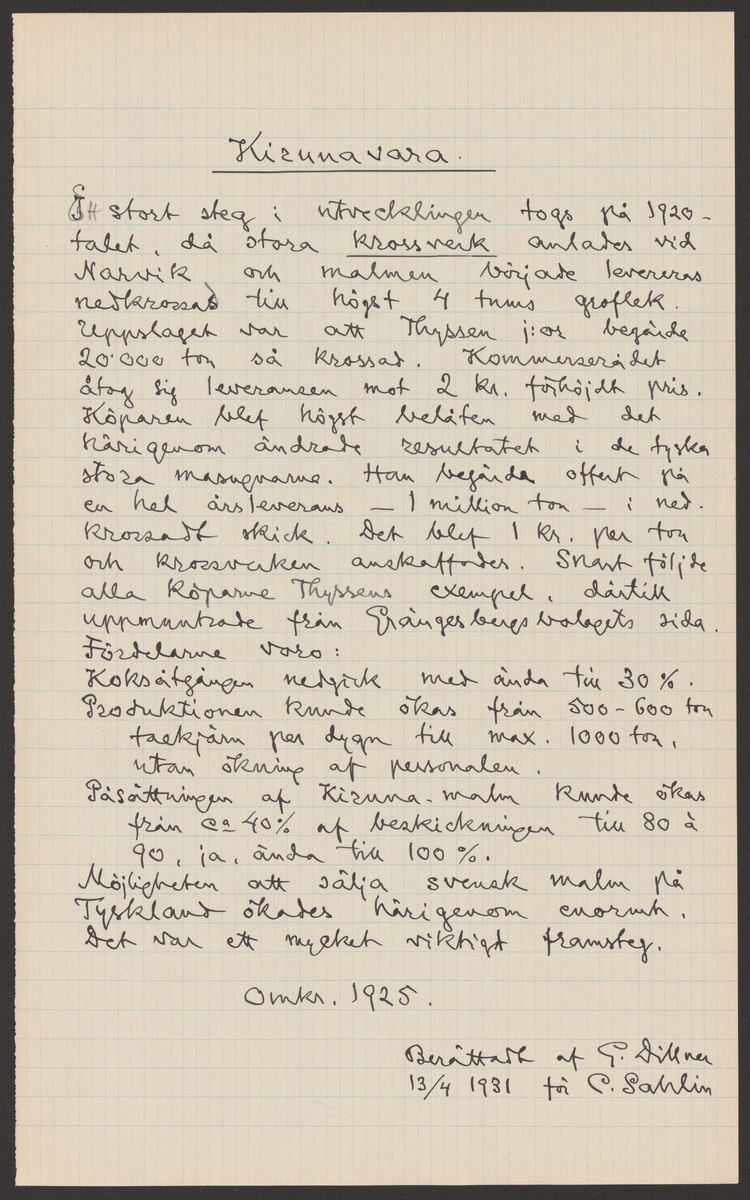 Kirunavara.
Ett stort steg i utvecklingen togs på 1920-
talet, då stora krossverk anlades vid
Narvik och malmen började levereras
nedkrossad till högst 4 tums groflek.
Uppslaget var att Thyssen j:or begärde
20'000 ton så krossad. Kommerserådet
åtog sig leveransen mot 2 kr. förhöjdt pris.
Köparen blef högst belåten med det
härigenom ändrade resultatet i de tyska
stora masugnarne. Han begärde offert på
en hel årsleverans – 1 million ton – i ned-
krossadt skick. Det blef 1 kr. per ton
och krossverken anskaffades. Snart följde
alla köparne Thyssens exempel, därtill
uppmuntrade från Grängesbergsbolagets sida.
Fördelarne voro:
Koksåtgången nedgick med ända till 30 %.
Produktionen kunde ökas från 500-600 ton
tackjärn per dygn till max. 1000 ton,
utan ökning af personalen.
Påsättningen af Kiruna-malm kunde ökas
från ca 40% af beskickningen till 80 à
90, ja, ända till 100 %.
Möjligheten att sälja svensk malm på
Tyskland ökades härigenom enormt.
Det var ett mycket viktigt framsteg.
Omkr. 1925.
Berättadt af G. Dillner
13/4 1931 för C. Sahlin